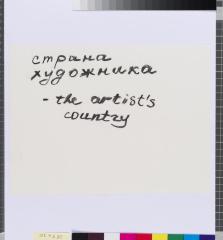 страна
художника
- the artist's
country